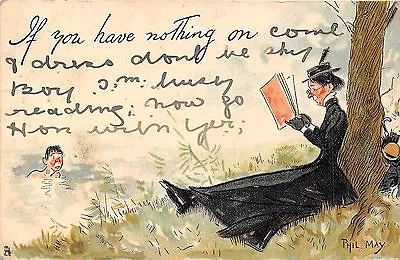 If you have nothing on come
& dress dont be shy
Boy. I,m busy
reading; now go
Hon with yer;
PHIL MAY